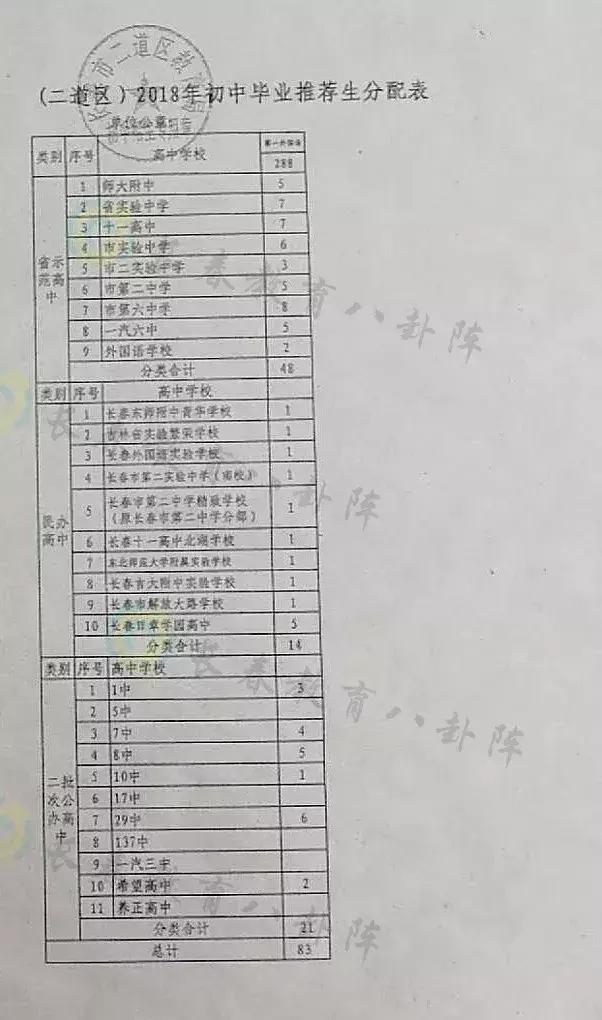 (二道区)2018年初中毕业推荐生分配表
单位公章
类别 序号 高中学校
288
省示范高中
1 师大附中 5
2 省实验中学 7
3 十一高中 7
4 市实验中学 6
5 市二实验中学 3
6 市第二中学 5
7 市第六中学 8
8 一汽六中 5
9 外国语学校 2
分类合计 48
类别 序号 高中学校
民办高中
1 长春东师附中青华学校 1
2 吉林省实验繁荣学校 1
3 长春外国语实验学校 1
4 长春市第二实验中学(南校) 1
5 长春市第二中学精致学校 1
(原长春市第二中学分部)
6 长春十一高中北湖学校 1
7 东北师范大学附属实验学校 1
8 长春吉大附中实验学校 1
9 长春市解放大路学校 1
10 长春日章学园高中 5
分类合计 14
类别 序号 高中学校
二批次公办高中
1 1中 3
2 5中
3 7中 4
4 8中 5
5 10中 1
6 17中
7 29中 6
8 137中
9 一汽三中
10 希望高中 2
11 养正高中
分类合计 21
总计 83
长春教育八卦阵
长春教育八卦阵
长春教育八卦阵
长春教育八卦阵